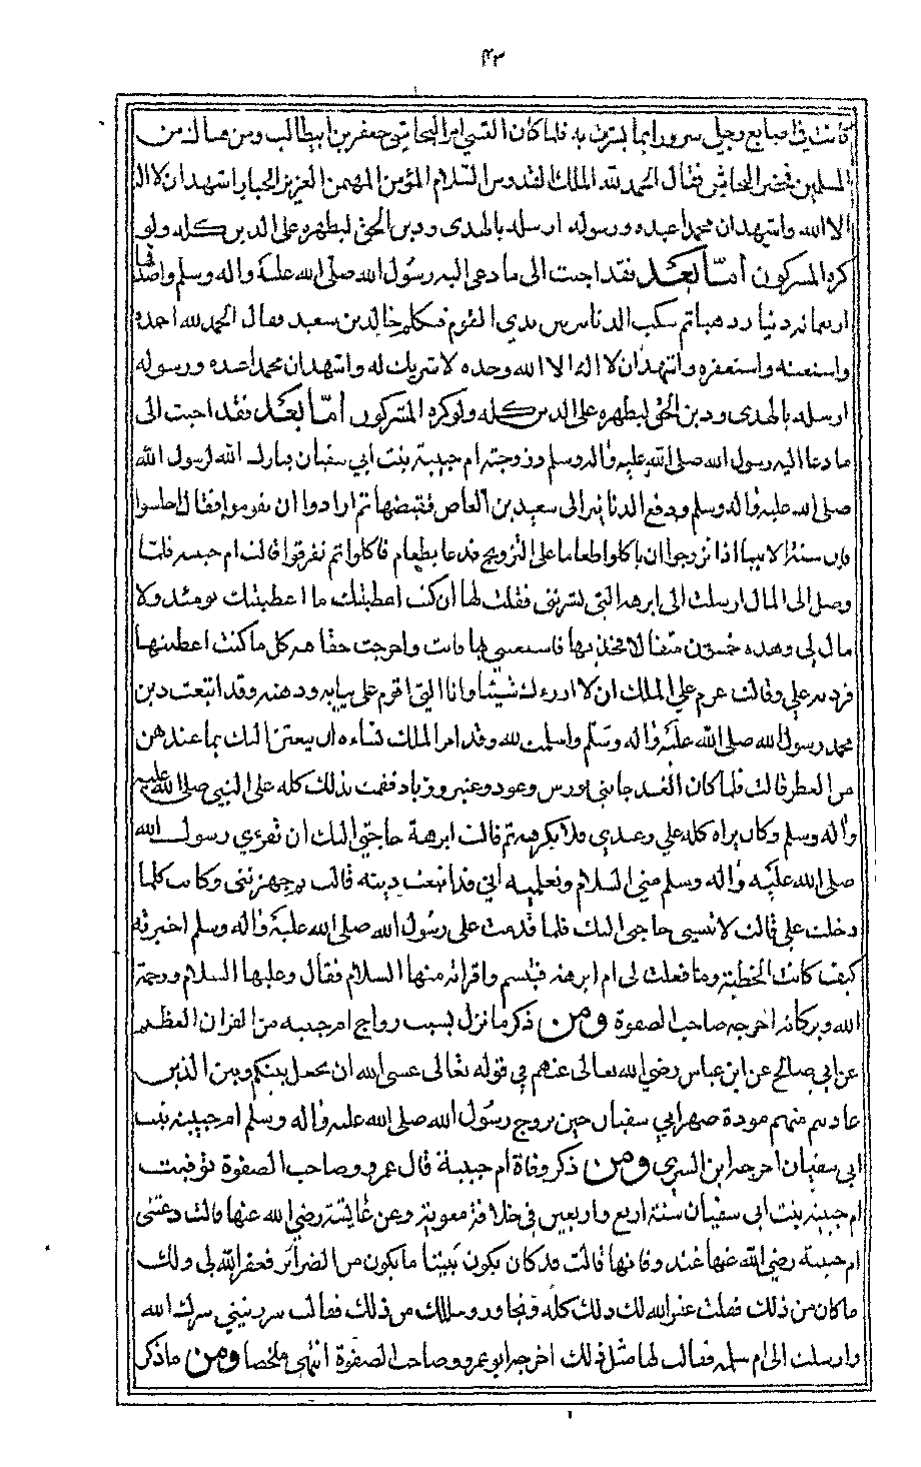 ٤٣
كانت في اصابع رجلي سرورا بما بشرت به فلما كان العشي امر النجاشي جعفر بن ابيطالب ومن هنالك من
المسلمين فحضر النجاشي فقال الحمد لله الملك القدوس السلام المؤمن المهيمن العزيز الجبار اشهد ان لا اله
الا الله واشهد ان محمدا عبده ورسوله ارسله بالهدى ودين الحق ليظهره على الدين كله ولو
كره المشركون أمّا بعد فقد اجبت الى ما دعى اليه رسول الله صلى الله عليه واله وسلم واصدقتها
اربعمائه دينار ذهبا ثم سكب الدنانير بين يدي القوم فتكلم خالد بن سعيد فقال الحمد لله احمده
واستعينه واستغفره واشهد ان لا اله الا الله وحده لا شريك له واشهد ان محمدا عبده ورسوله
ارسله بالهدى ودين الحق ليظهره على الدين كله ولو كره المشركون أمّا بعد فقد اجبت الى
ما دعا اليه رسول الله صلى الله عليه واله وسلم وزوجته ام حبيبة بنت ابي سفيان فبارك الله لرسول الله
صلى الله عليه واله وسلم ودفع الدنانير الى سعيد بن العاص فقبضها ثم ارادوا ان يقوموا فقال اجلسوا
فان سنة الانبيا اذا تزوجوا ان ياكلوا طعاما على التزويج فدعا بطعام فاكلوا ثم تفرقوا قالت ام حبيبه فلما
وصل الى المال ارسلت الى ابرهه التي بشرتني فقلت لها ان كنت اعطيتك ما اعطيتك يومئذ ولا
مال لي وهذه خمسون مثقالا فخذيها فاستعيني بها فابت واخرجت حقا فيه كل ما كنت اعطيتها
فردته علي وقالت عزم علي الملك ان لا ازرءك شيئا وانا التي اقوم على ثيابه ودهنه وقد اتبعت دين
محمد رسول الله صلى الله عليه واله وسلم واسلمت لله وقد امر الملك نساءه ان يبعثن اليك بما عندهن
من العطر قالت فلما كان الغد جاءتني بورس وعود وعنبر وزباد فقدمت بذلك كله على النبي صلى الله عليه
واله وسلم وكان يراه كله علي وعندي فلا ينكرهه ثم قالت ابرهة حاجتي اليك ان تقرئي رسول الله
صلى الله عليه واله وسلم مني السلام وتعلميه اني قد اتبعت دينه قالت ثم جهزتني وكانت كلما
دخلت علي قالت لا تنسي حاجتي اليك فلما قدمت على رسول الله صلى الله عليه واله وسلم اخبرته
كيف كانت الخطبة وما فعلت لي ام ابرهه فتبسم واقرأته منها السلام فقال وعليها السلام ورحمة
الله وبركاته اخرجه صاحب الصفوة ومن ذكر ما نزل بسبب زواج ام حبيبه من القران العظيم
عن ابي صالح عن ابن عباس رضي الله تعالى عنهم في قوله تعالى عسى الله ان يجعل بينكم وبين الذين
عاديتم منهم مودة صهر ابي سفيان حين تزوج رسول الله صلى الله عليه واله وسلم ام حبيبة بنت
ابي سفيان اخرجه ابن السري ومن ذكر وفاة ام حبيبة قال ابو عمرو وصاحب الصفوة توفيت
ام حبيبة بنت ابي سفيان سنة اربع واربعين في خلافة معوية وعن عائشة رضي الله عنها قالت دعتني
ام حبيبة رضي الله عنها عند وفاتها قالت قد كان يكون بيننا ما يكون من الضرائر فغفر الله لي ولك
ما كان من ذلك فقلت غفر الله لك ذلك كله وتجاوز وحللك من ذلك فقالت سررتيني سرك الله
وارسلت الى ام سلمه فقالت لها مثل ذلك اخرجه ابو عمرو وصاحب الصفوة انتهى ملخصا ومن ما ذكر